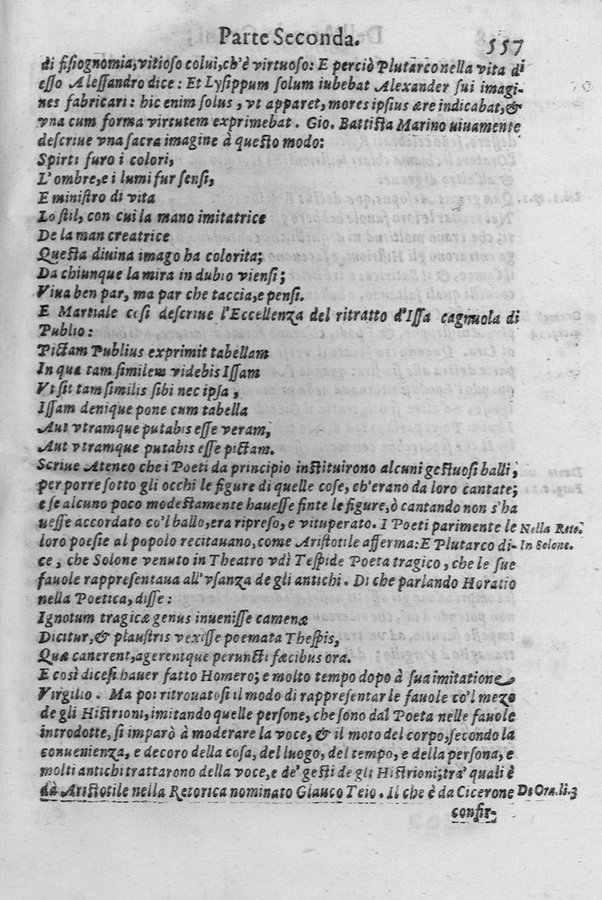 Parte Seconda. 557
di fisiognomia, vitioso colui, ch'è virtuoso: E perciò Plutarco nella vita di
esso Alessandro dice: Et Lysippum solum iubebat Alexander sui imagi-
nes fabricari: hic enim solus, vt apparet, mores ipsius ære indicabat, &
vna cum forma virtutem exprimebat. Gio. Battista Marino viuamente
descriue vna sacra imagine à questo modo:
Spirti furo i colori,
L'ombre, e i lumi fur sensi,
E ministro di vita
Lo stil, con cui la mano imitatrice
De la man creatrice
Questa diuina imago ha colorita;
Da chiunque la mira in dubio viensi;
Viua ben par, ma par che taccia, e pensi.
E Martiale cosi descriue l'Eccellenza del ritratto d'Issa cagnuola di
Publio:
Pictam Publius exprimit tabellam
In qua tam similem videbis Issam
Vt sit tam similis sibi nec ipsa,
Issam denique pone cum tabella
Aut vtramque putabis esse veram,
Aut vtramque putabis esse pictam.
Scriue Ateneo che i Poeti da principio instituirono alcuni gestuosi balli,
per porre sotto gli occhi le figure di quelle cose, ch'erano da loro cantate;
e se alcuno poco modestamente hauesse finte le figure, ò cantando non s'ha
uesse accordato co'l ballo, era ripreso, e vituperato. I Poeti parimente le Nella Reto.
loro poesie al popolo recitauano, come Aristotile afferma: E Plutarco di- In Solone.
ce, che Solone venuto in Theatro vdì Tespide Poeta tragico, che le sue
fauole rappresentaua all'vsanza de gli antichi. Di che parlando Horatio
nella Poetica, disse:
Ignotum tragicæ genus inuenisse camenæ
Dicitur, & plaustris vexisse poemata Thespis,
Quæ canerent, agerentque peruncti fæcibus ora.
E così dicesi hauer fatto Homero; e molto tempo dopo à sua imitatione
Virgilio. Ma poi ritrouatosi il modo di rappresentar le fauole co'l mezo
de gli Histrioni, imitando quelle persone, che sono dal Poeta nelle fauole
introdotte, si imparò à moderare la voce, & il moto del corpo, secondo la
conuenienza, e decoro della cosa, del luogo, del tempo, e della persona, e
molti antichi trattarono della voce, e de' gesti de gli Histrioni; tra' quali è
da Aristotile nella Retorica nominato Glauco Teio. Il che è da Cicerone De Ora. li. 3
confir-